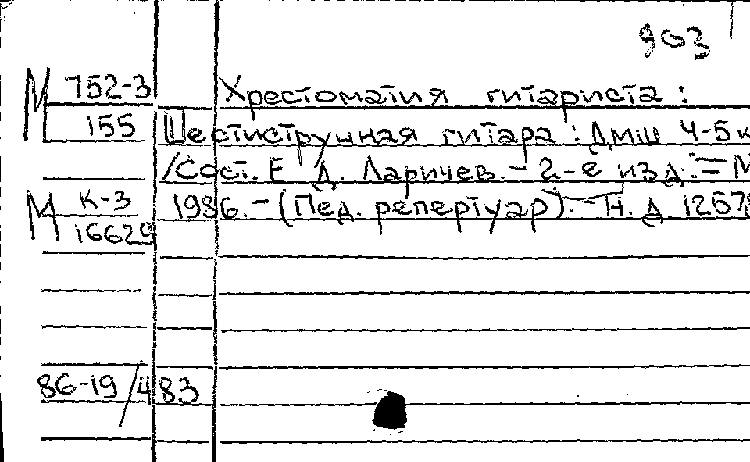 903
М 752-3 Хрестоматия гитариста :
155 Шестиструнная гитара : ДМШ 4-5 к
/Сост. Е. Д. Ларичев. - 2-е изд. - М
М К-3 1986. - (Пед. репертуар). - Н. д 1267
16629
86-19/483